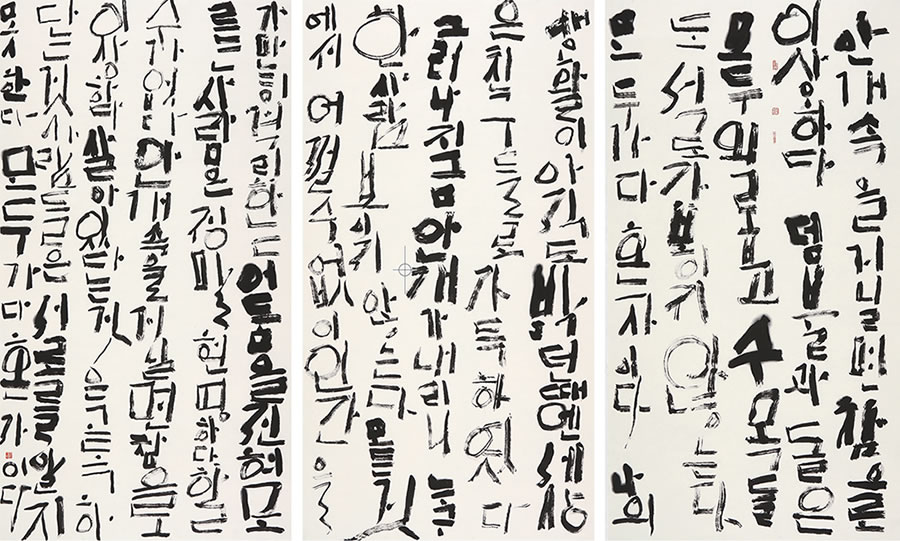 안개 속을 거닐면 참으로
이상하다 덤불과 돌은
모두 외롭고 수목들
도 서로가 보이지 않는다
모두가 다 혼자이다 나의
생활이 아직도 밝던 때엔 세상
은 친구들로 가득하였다
그러나 지금 안개가 내리니 누구
한 사람 보이지 않는다 모든 것
에서 어쩔 수 없이 인간을
가만히 격리하는 어둠을 전혀 모
르는 사람은 정말 현명하다
수가 없다 안개 속을 거닐면 참으로
이상하다 살아 있다는 것은 고독하
단 것 사람들은 서로를 알지
못한다 모두가 다 혼자이다